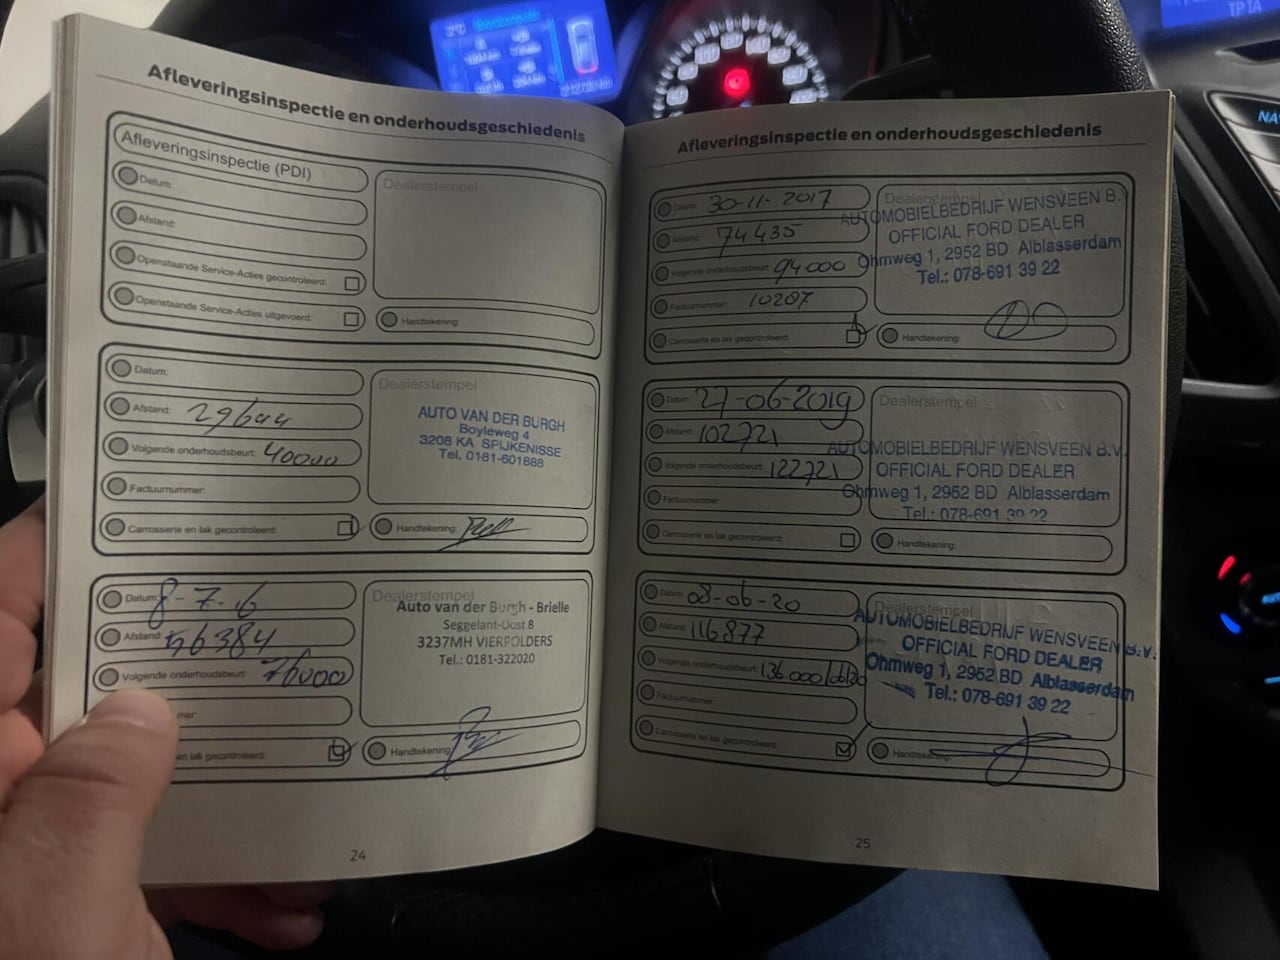 Afleveringsinspectie en onderhoudsgeschiedenis
Afleveringsinspectie (PDI)
Datum:
Afstand:
Openstaande Service-Acties gecontroleerd:
Openstaande Service-Acties uitgevoerd:
Dealerstempel
Handtekening:
Datum:
Afstand: 29644
Volgende onderhoudsbeurt: 40000
Factuurnummer:
Carrosserie en lak gecontroleerd:
Dealerstempel
AUTO VAN DER BURGH
Boyleweg 4
3208 KA SPIJKENISSE
Tel. 0181-601888
Handtekening:
Datum: 8-7-16
Afstand: 56384
Volgende onderhoudsbeurt: 76000
mer:
en lak gecontroleerd:
Dealerstempel
Auto van der Burgh - Brielle
Seggelant-Oost 8
3237MH VIERPOLDERS
Tel.: 0181-322020
Handtekening:
24
Afleveringsinspectie en onderhoudsgeschiedenis
Datum: 30-11-2017
Afstand: 74435
Volgende onderhoudsbeurt: 94000
Factuurnummer: 10207
Carrosserie en lak gecontroleerd:
Dealerstempel
AUTOMOBIELBEDRIJF WENSVEEN B.V.
OFFICIAL FORD DEALER
Ohmweg 1, 2952 BD Alblasserdam
Tel.: 078-691 39 22
Handtekening:
Datum: 27-06-2019
Afstand: 102721
Volgende onderhoudsbeurt: 122721
Factuurnummer:
Carrosserie en lak gecontroleerd:
Dealerstempel
AUTOMOBIELBEDRIJF WENSVEEN B.V.
OFFICIAL FORD DEALER
Ohmweg 1, 2952 BD Alblasserdam
Tel.: 078-691 39 22
Handtekening:
Datum: 08-06-20
Afstand: 116877
Volgende onderhoudsbeurt: 136.000
Factuurnummer:
Carrosserie en lak gecontroleerd:
Dealerstempel
AUTOMOBIELBEDRIJF WENSVEEN B.V.
OFFICIAL FORD DEALER
Ohmweg 1, 2952 BD Alblasserdam
Tel.: 078-691 39 22
Handtekening:
25